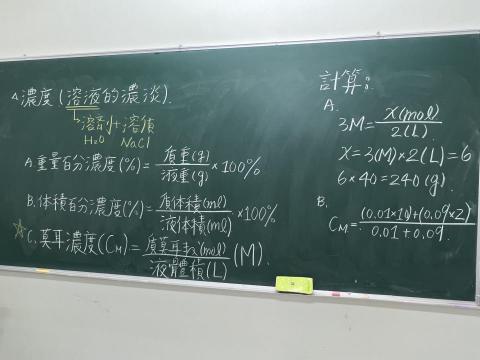 △濃度(溶液的濃淡).
↳溶劑+溶質
H₂O NaCl
A.重量百分濃度(%)=質重(g)/液重(g)×100%
B.体積百分濃度(%)=質体積(ml)/液体積(ml)×100%
☆C.莫耳濃度(CM)=質莫耳数(mol)/液體積(L)(M)
計算:
A.
3M=x(mol)/2(L)
x=3(M)×2(L)=6
6×40=240(g).
B.
CM=(0.01×10)+(0.09×2)/0.01+0.09